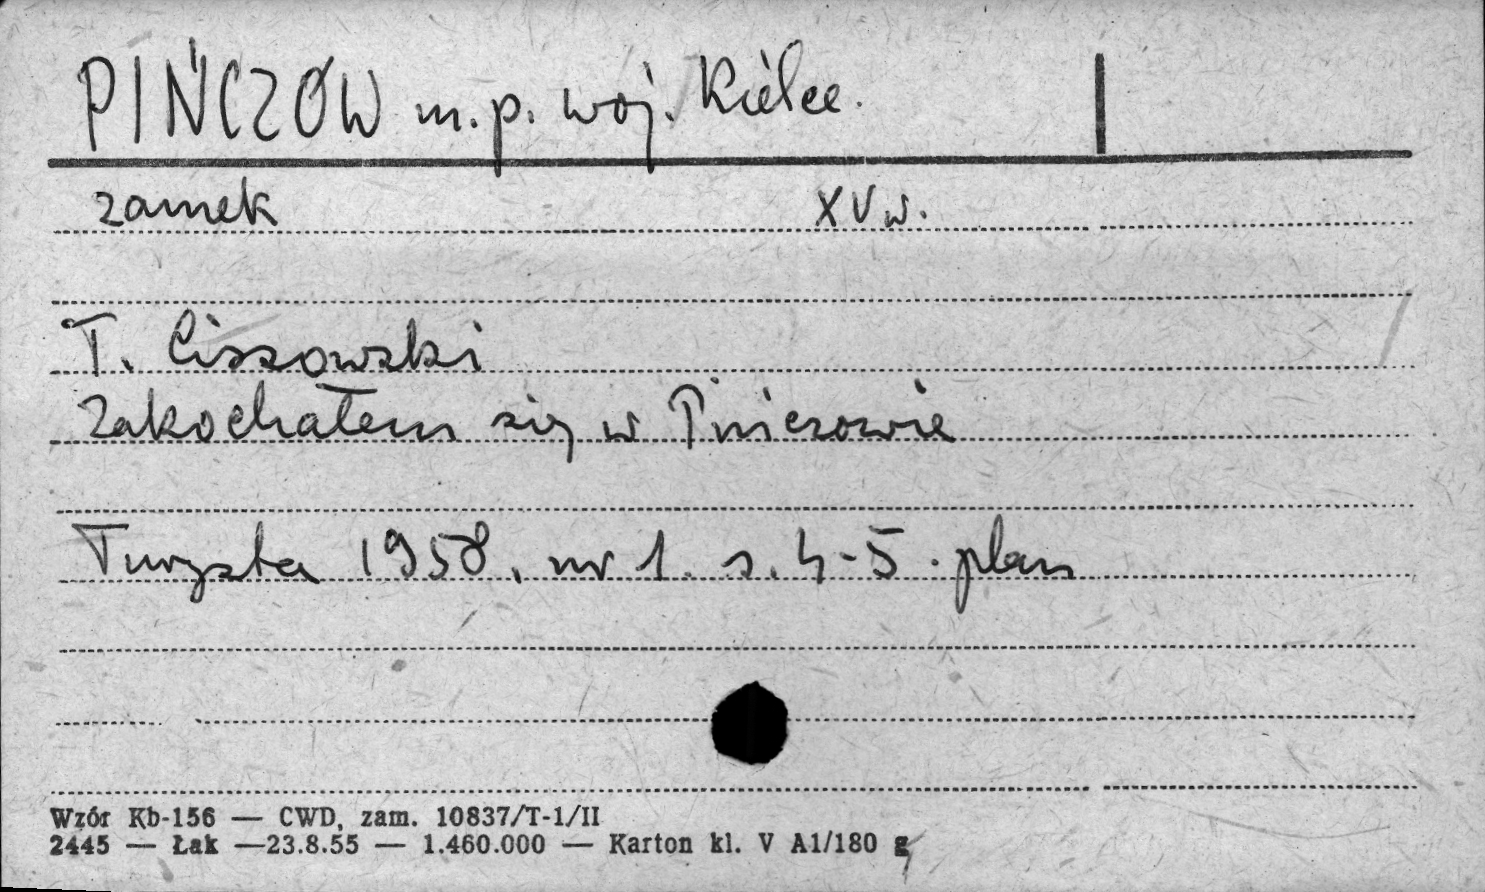 PIŃCZÓW m.p. woj. Kielce.
zamek XV w.
T. Cissowski
Zakochałem się w Pińczowie
Turysta 1958. nr 1. s. 4-5. plan
Wzór Kb-156 — CWD, zam. 10837/T-1/II
2445 — Łak —23.8.55 — 1.460.000 — Karton kl. V A1/180 g